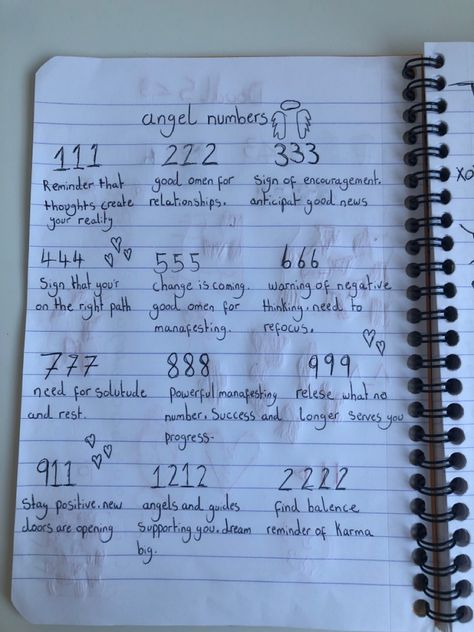 angel numbers
111 222 333
Reminder that
thoughts create
your reality
good omen for
relationships.
Sign of encouragement.
anticipat good news
444 555 666
Sign that your
on the right path
change is coming.
good omen for
manafesting.
warning of negative
thinking. need to
refocus.
777 888 999
need for solutude
and rest.
powerful manafesting
number. Success and
progress-
relese what no
longer serves you
911 1212 2222
Stay positive. new
doors are opening
angels and guides
supporting you. dream
big.
find balence
reminder of Karma